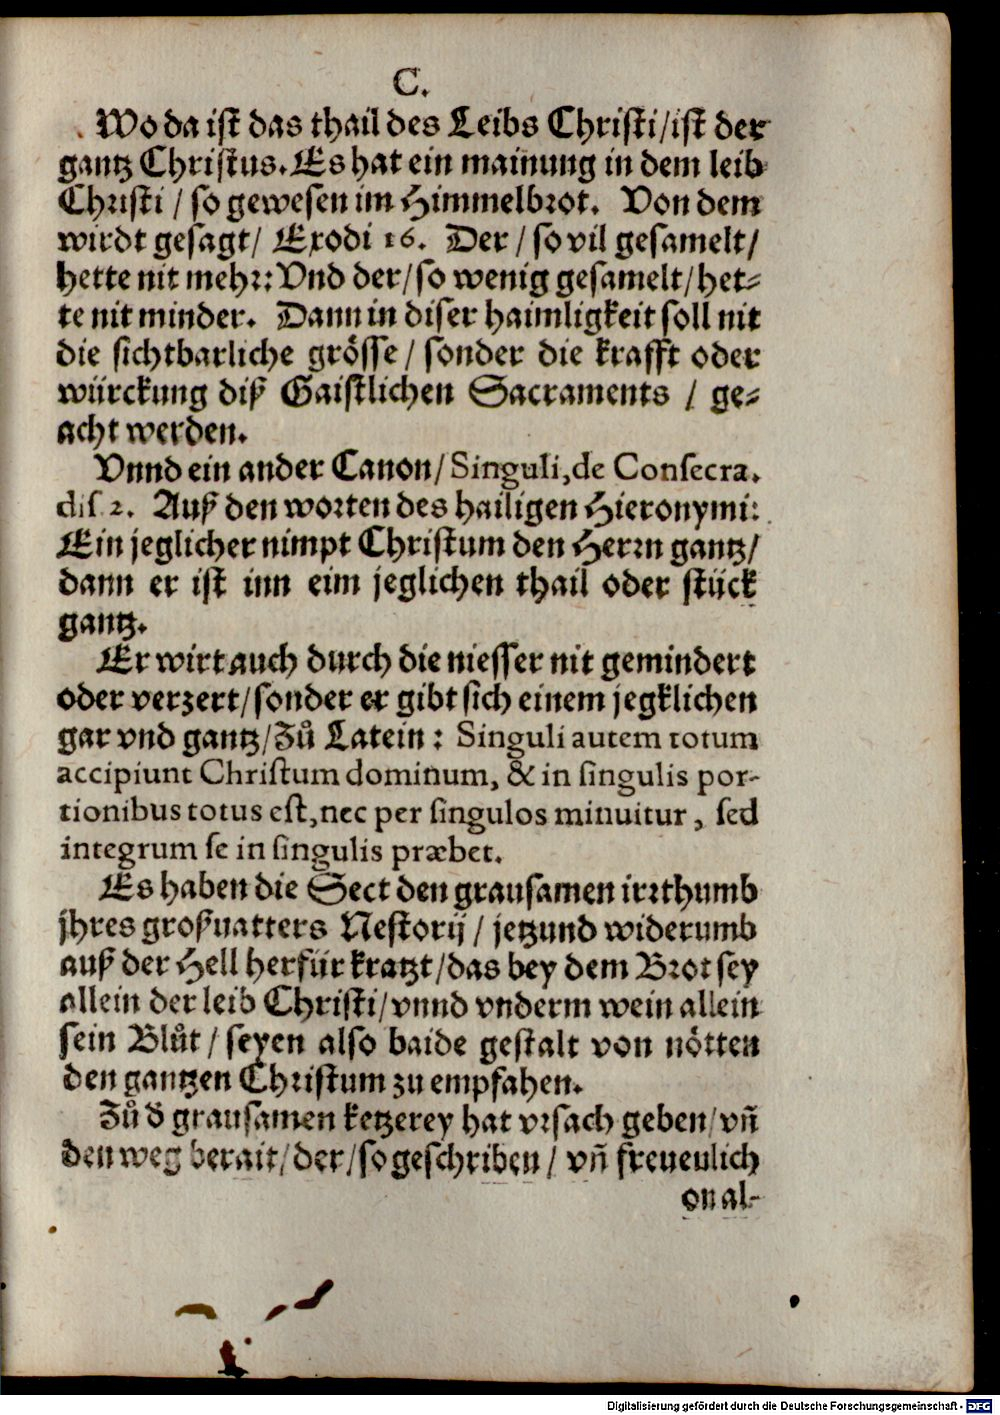 C.
Wo da ist das thail des Leibs Christi/ist der
gantz Christus. Es hat ein mainung in dem leib
Christi / so gewesen im Himmelbrot. Von dem
wirdt gesagt/ Exodi 16. Der / so vil gesamelt/
hette nit mehr: Vnd der/so wenig gesamelt/het-
te nit minder. Dann in diser haimligkeit soll nit
die sichtbarliche grösse / sonder die krafft oder
würckung diß Gaistlichen Sacraments / ge-
acht werden.
Vnnd ein ander Canon/ Singuli, de Consecra.
dis. 2. Auß den worten des hailigen Hieronymi:
Ein jeglicher nimpt Christum den Herrn gantz/
dann er ist inn eim jeglichen thail oder stück
gantz.
Er wirt auch durch die niesser nit gemindert
oder verzert/sonder er gibt sich einem jegklichen
gar vnd gantz/Zů Latein: Singuli autem totum
accipiunt Christum dominum, & in singulis por-
tionibus totus est, nec per singulos minuitur, sed
integrum se in singulis præbet.
Es haben die Sect den grausamen irrthumb
jhres großuatters Nestorij / jetzund widerumb
auß der Hell herfür kratzt/das bey dem Brot sey
allein der leib Christi/vnnd vnderm wein allein
sein Blůt / seyen also baide gestalt von nötten
den gantzen Christum zu empfahen.
Zů d̄ grausamen ketzerey hat vrsach geben/vñ
den weg berait/der/so geschriben / vñ freuenlich
on al-
Digitalisierung gefördert durch die Deutsche Forschungsgemeinschaft - DFG